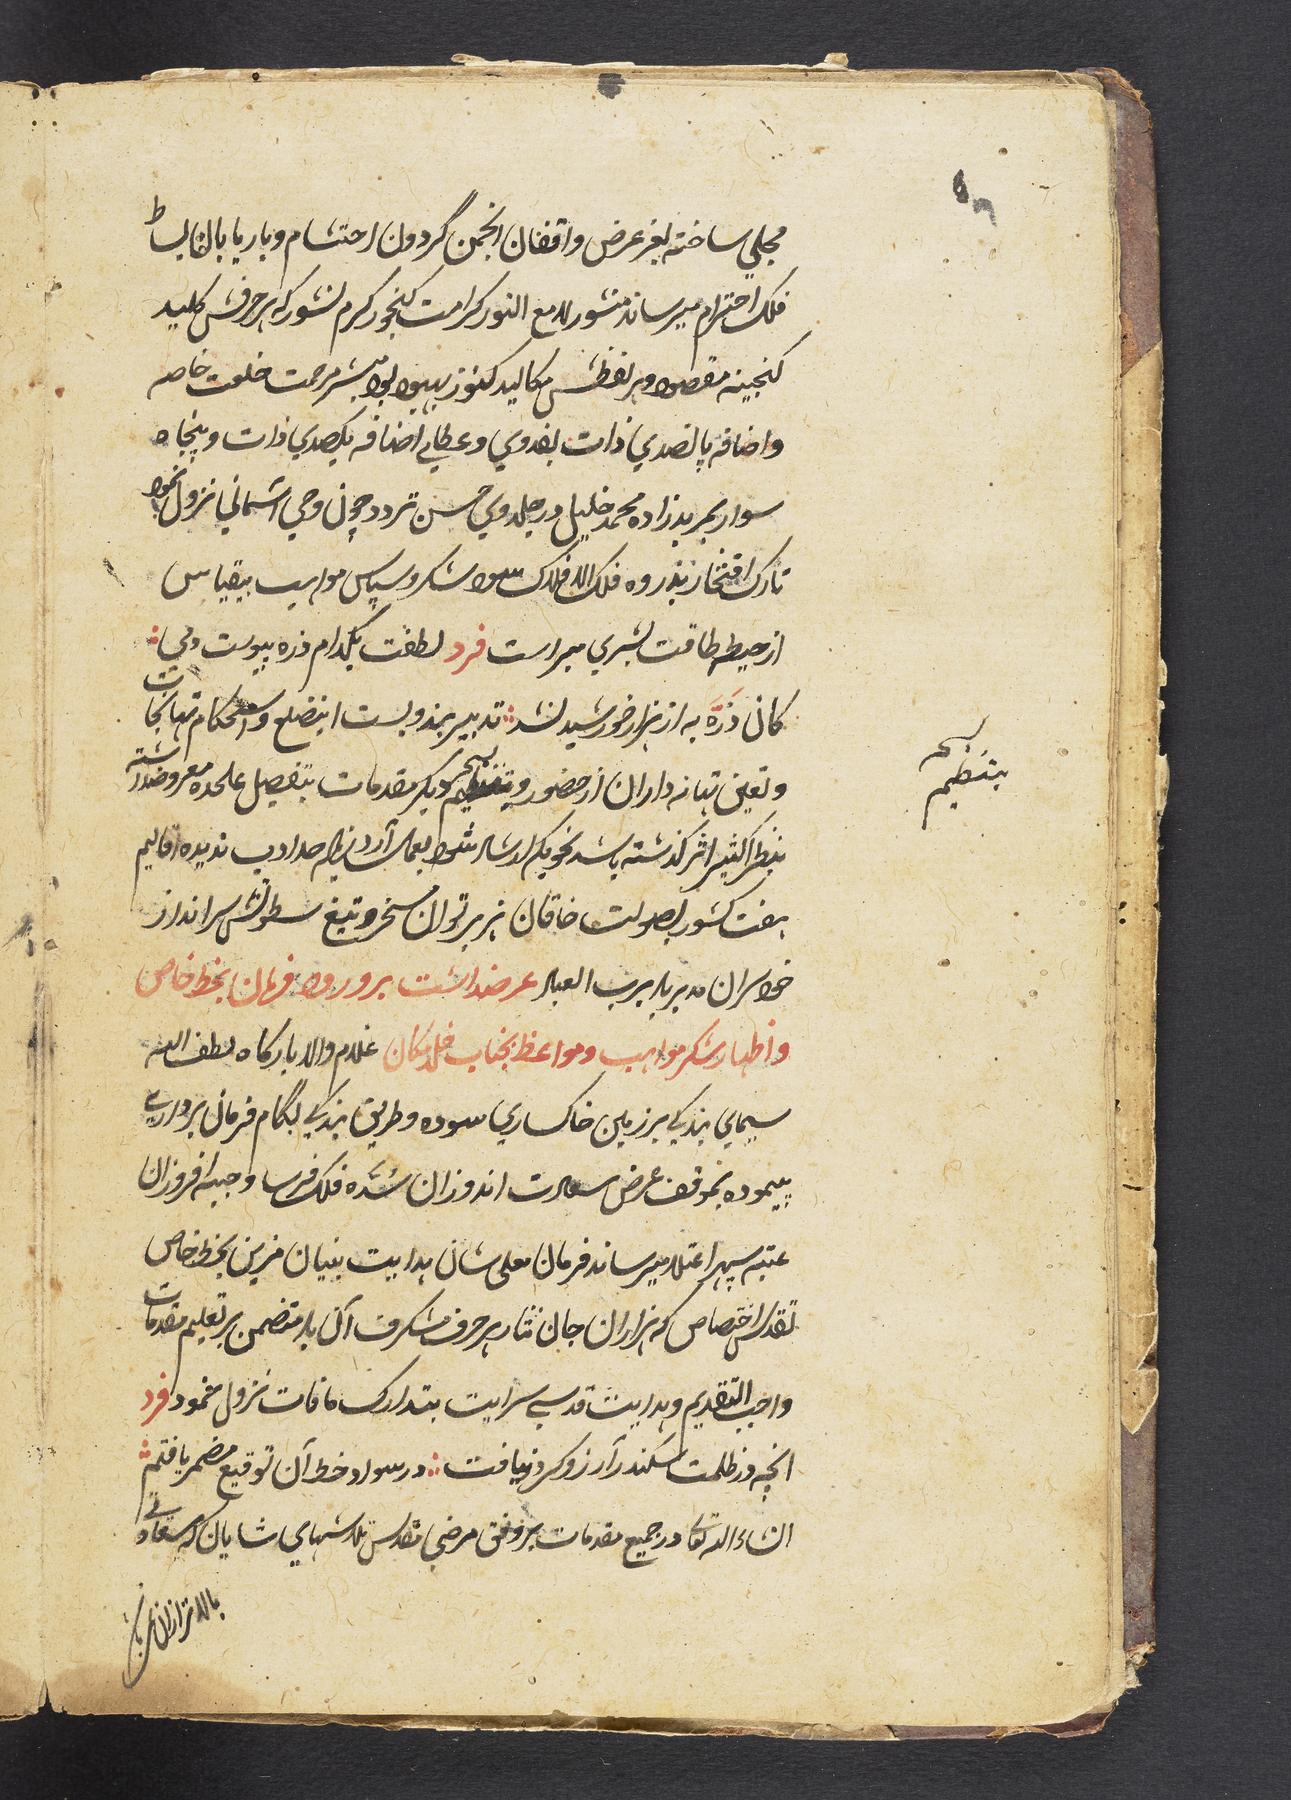 مجلی ساخته بعز عرض واقفان انجمن گردون احتشام و باریابان بساط
فلک احترام میرساند منشور لامع النور کرامت گنجور کرم نشور که هر حرفش کلید
گنجینه مقصود و هر لفظش مکالید کنوز بهبود بود مبشر مرحمت خلعت خاصه
و اضافه پانصدی ذات بفدوی و عطای اضافه یکصدی ذات و پنجاه
سوار بمریدزاده محمد خلیل در جلدوی حسن تردد چون وحی آسمانی نزول نمود
تارک افتخار بذروه فلک الافلاک سود شکر و سپاس مواهب بیقیاس
از حیطه طاقت بشری مبراست فرد لطفت بکدام ذره پیوست دمی
کان ذره به از هزار خورشید نشد تدبیر بندوبست این ضلع و استحکام تهانجات
و تعین تهانه داران از حضور و دیگر مقدمات بتفصیل علحده معروضداشته
بتنظیم
بنظر اکثیر اثر گذشته باشد بنحویکه ارشاد شود بعمل آرد
هفت کشور بصولت خاقان هزبر توان مسخر و تیغ سطوتش سرانداز
خودسران مدبر باد برب العباد عرضداشت برورود فرمان بخط خاص
و اظهار شکر مواهب و مواعظ بجناب خلدمکان غلام والا بارگاه لطف الله
سیمای بندگی بر زمین خاکساری سوده و طریق بندگی بگام فرمان برداری
پیموده بموقف عرض سعادت اندوزان سده فلک فرسا و جبهه افروزان
عتبه سپهر اعتلا میرساند فرمان معلی شان هدایت بنیان مزین بخط خاص
تقدس اختصاص که هزاران جان نثار هر حرف شگرف آن باد متضمن بر تعلیم مقدمات
واجب التقدیم و هدایت قدسی سرایت بتدارک مافات نزول نمود فرد
انچه در ظلمت سکندر آرزو کرد و نیافت در سواد خط آن توقیع مضمر یافتم
انشاء الله تعالی در جمیع مقدمات بر وفق مرضی مقدس تلاشهای شایان که سعادتی
بالاتر ازان